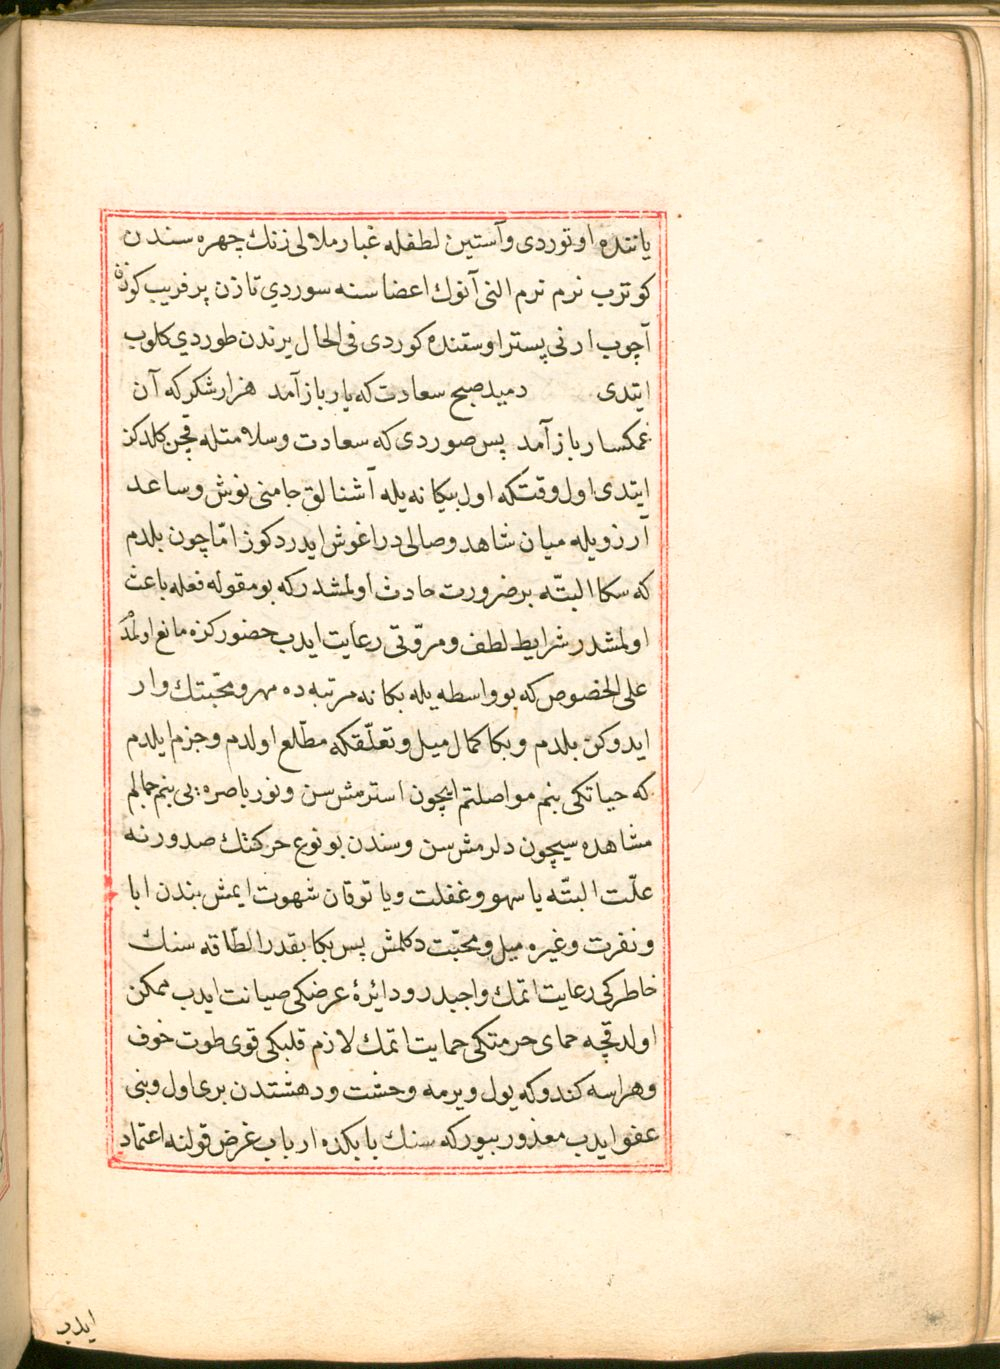 یاننده اوتوردی وآستین لطفله غبار ملالی زنك چهره سندن
كوتریب نرم نرم النی آنوك اعضا سنه سوردی تا زن پر فریب كوزن
آچوب ارنی پستر اوستنده كوردی فی الحال یرندن طوردی كلوب
ایتدی دمید صبح سعادت كه یار باز آمد هزار شكر كه آن
غمكسار باز آمد پس صوردی كه سعادت وسلامتله قچن كلدكز
ایتدی اول وقتكه اول بیكانه یله آشنالق جامنی نوش وساعد
آرزویله میان شاهد وصالی در اغوش ایدردكوز امّا چون بلدم
كه سكا البتّه بر ضرورت حادث اولمشدر كه بو مقوله فعله باعث
اولمشدر شرایط لطف ومروّتی رعایت ایدب حضوركزه مانع اولمدم
علی الخصوص كه بو واسطه یله بكا نه مرتبه ده مهر ومحبّتك وار
ایدوكن بلدم وبكا كمال میل وتعلّقكه مطّلع اولدم وجزم ایلدم
كه حیاتكی بنم مواصلتم ایچون استرمش سن ونور باصره یی بنم جمالم
مشاهده سیچون دلرمش سن وسندن بو نوع حركتك صدورنه
علّت البتّه یا سهو وغفلت ویا توقان شهوت ایمش بندن ابا
ونفرت وغیره میل ومحبّت دكلمش پس بكا بقدر الطّاقه سنك
خاطركی رعایت اتمك واجبدر ودائرهٔ عرضكی صیانت ایدب ممكن
اولدقچه حمای حرمتكی حمایت اتمك لازم قلبكی قوی طوت خوف
وهراسه كندوكه یول ویرمه وحشت ودهشتدن بری اول وبنی
عفو ایدب معذور بیور كه سنك بابكده ارباب غرض قولنه اعتماد
ایدب